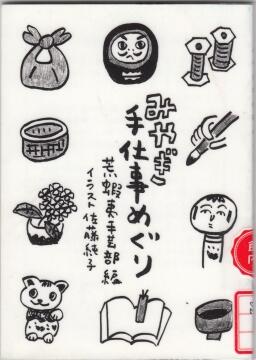 みやぎ
手仕事めぐり
荒蝦夷手芸部編
イラスト佐藤純子